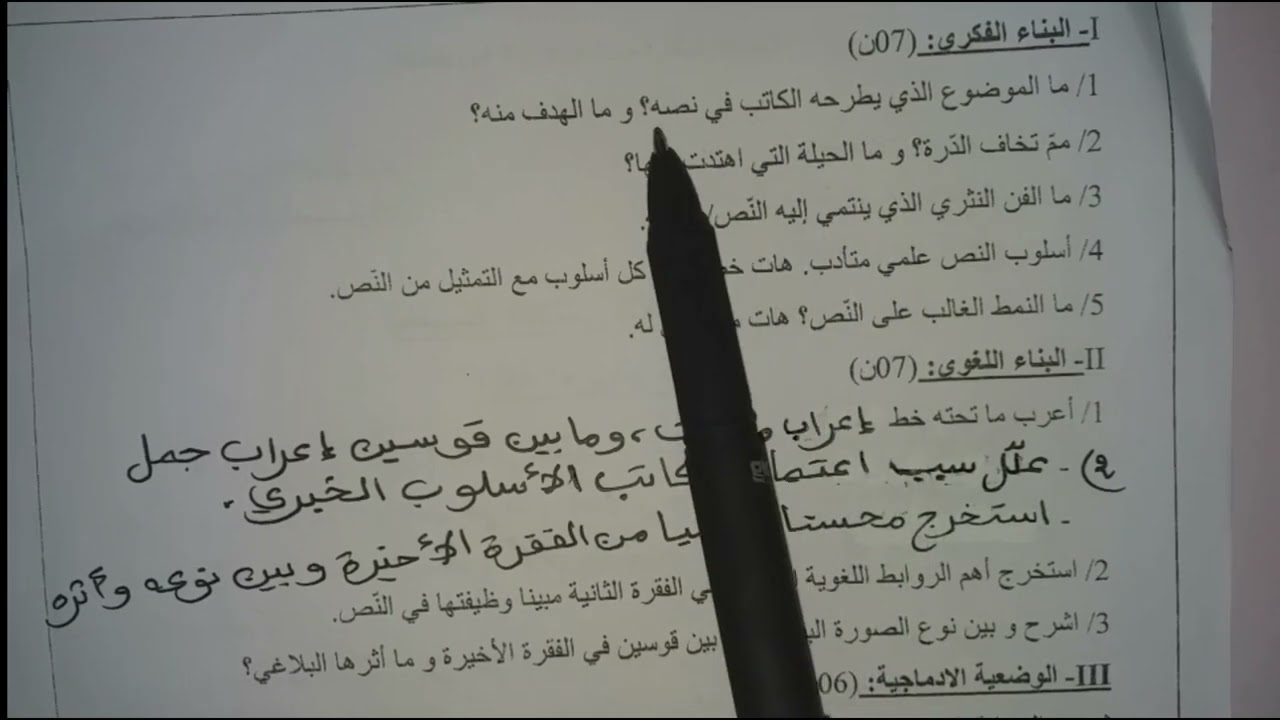 I- البناء الفكري: (07ن)
1/ ما الموضوع الذي يطرحه الكاتب في نصه؟ و ما الهدف منه؟
2/ ممّ تخاف الدّرة؟ و ما الحيلة التي اهتدت
3/ ما الفن النثري الذي ينتمي إليه النّص/
4/ أسلوب النص علمي متأدب. هات كل أسلوب مع التمثيل من النّص.
5/ ما النمط الغالب على النّص؟ هات له.
II- البناء اللغوي: (07ن)
1/ أعرب ما تحته خط إعراب ، وما بين قوسين إعراب جمل
2) - علّل سبب الأسلوب الخبري.
- استخرج من الفقرة الأخيرة وبين نوعه وأثره
2/ استخرج أهم الروابط اللغوية الفقرة الثانية مبينا وظيفتها في النّص.
3/ اشرح و بين نوع الصورة بين قوسين في الفقرة الأخيرة و ما أثرها البلاغي؟
III- الوضعية الادماجية: (06